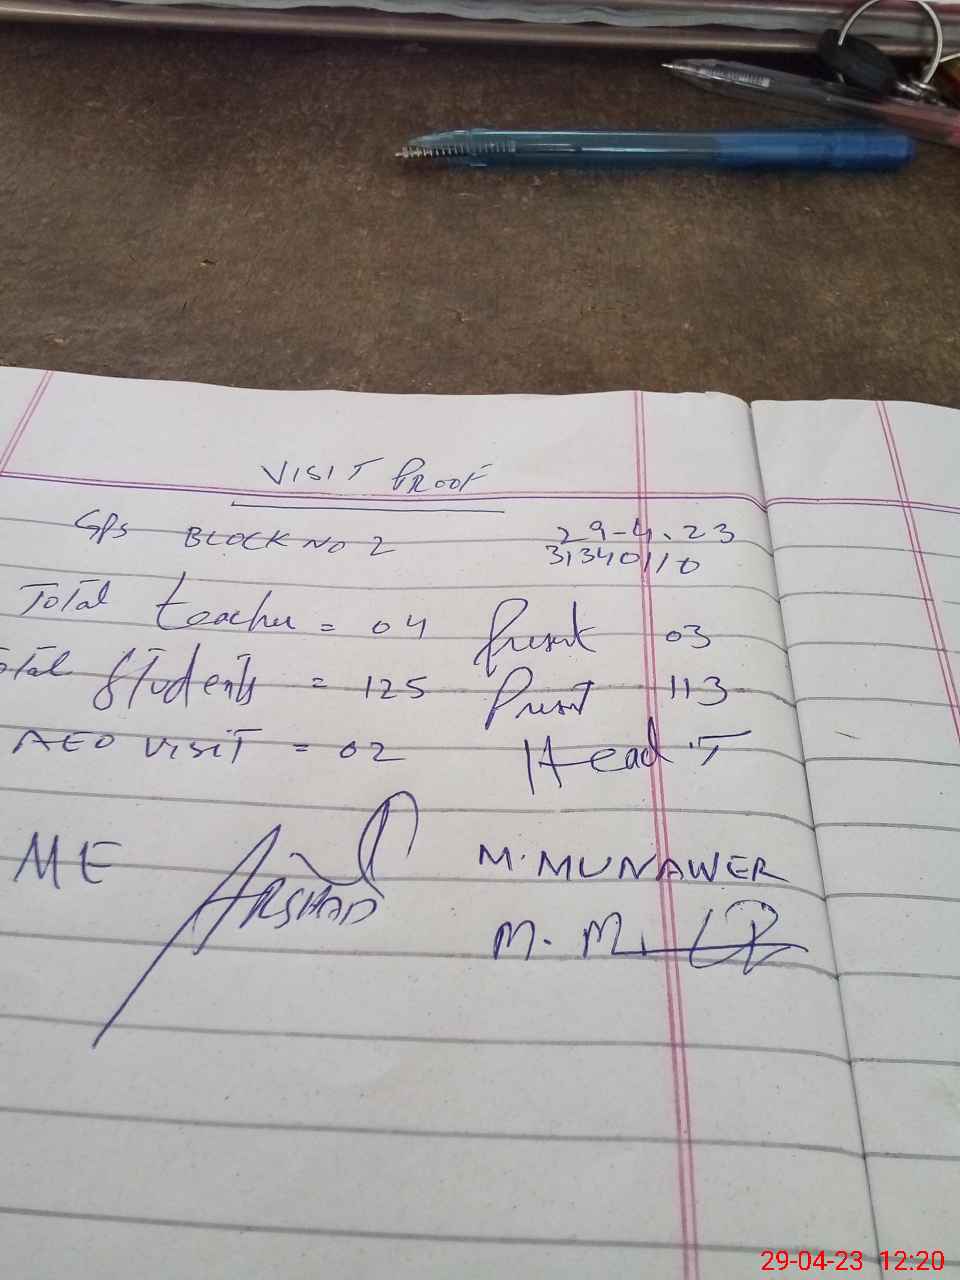 VISIT PROOF
GPS BLOCK NO 2 29-4.23
31340110
Total teacher = 04 Present 03
Total Students = 125 Present 113
AEO VISIT = 02 Head.T
ME ARSHAD M.MUNAWER
M. M
29-04-23 12:20